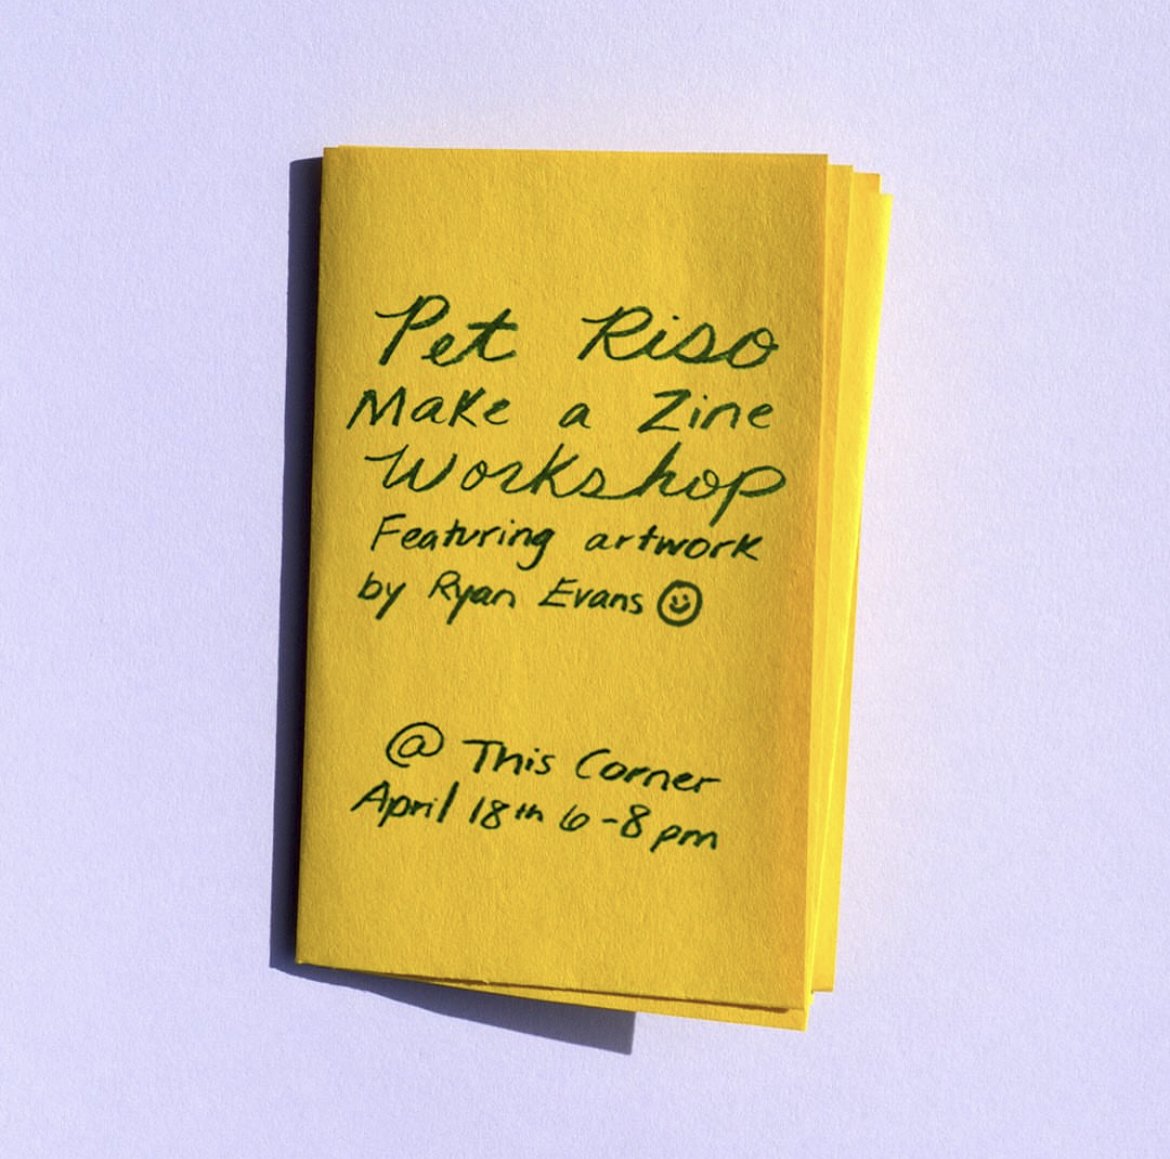 Pet Riso
Make a Zine
Workshop
Featuring artwork
by Ryan Evans
@ This Corner
April 18th 6-8 pm